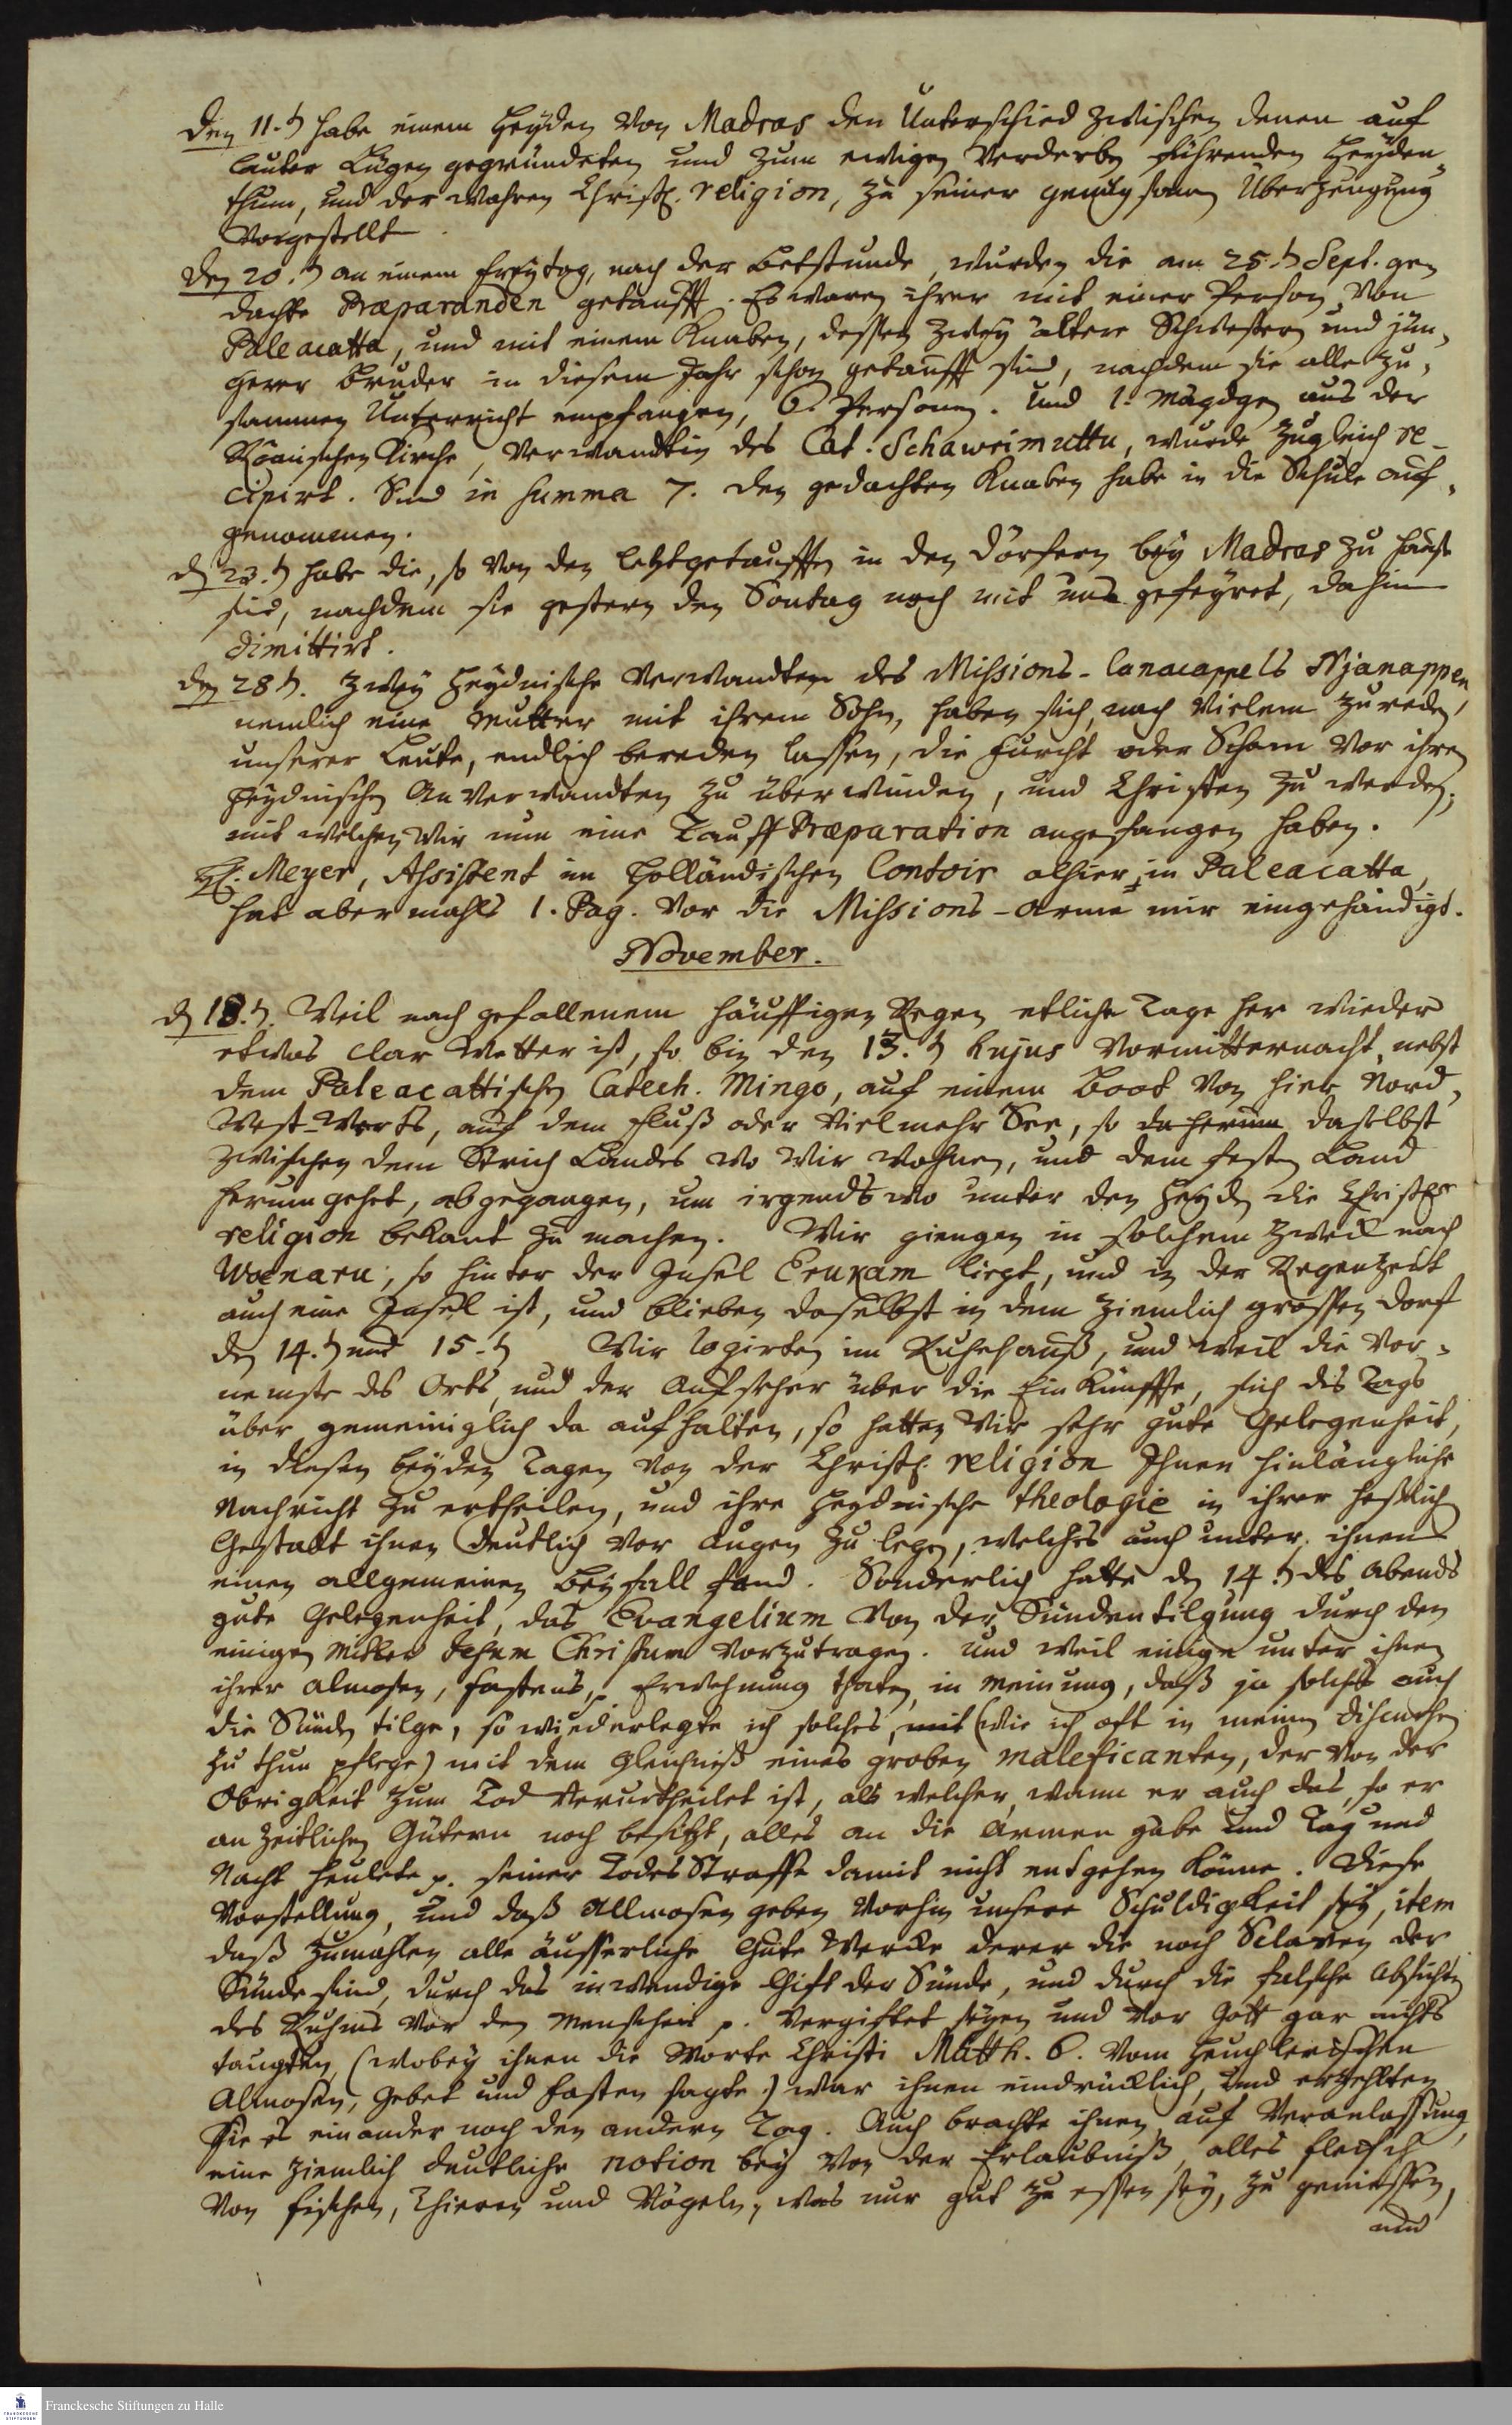 den 11.t habe einem Heyden von Madras den Unterschied zwischen denen auf
lauter Lügen gegründeten und zum ewigen Verderben führenden Heyden-
thum, und der wahren Christl. religion, zu seiner genugsamen Überzeugung
vorgestellt.
den 20.t an einem Freytag, nach der Betstunde, wurden die am 25.t Sept. ge-
dachte Præparanden getaufft. Es waren ihrer mit einer Person von
Paleacatta, und mit einem Knaben, dessen zwey ältere Schwestern und jün-
gerer Bruder in diesem Jahr schon getaufft sind, nachdem sie alle zu-
sammen Unterricht empfangen, 6. Personen. Und 1. Mägdgen aus der
Römischen Kirche, Verwandtin des Cat. Schawrimuttu, wurde zugleich re-
cipirt. Sind in summa 7. Den gedachten Knaben habe in die Schule auf-
genommen.
d 23.t habe die, so von den letztgetaufften in den Dörfern bey Madras zu Hause
sind, nachdem sie gestern den Sontag noch mit uns gefeyret, dahin
dimittirt.
den 28t. Zwey Heydnische Verwandten des Missions-Canacappels Njanappen,
nemlich eine Mutter mit ihrem Sohn, haben sich, nach vielem zureden
unserer Leute, endlich bereden lassen, die Furcht oder Scham vor ihren
Heydnischen Anverwandten zu überwinden, und Christen zu werden;
mit welchen wir nun eine Tauff Præparation angefangen haben.
H. Meyer, Assistent im Holländischen Contoir alhier in Paleacatta,
hat abermahls 1. Pag. vor die Missions-Arme mir eingehändigt.
November.
d 18.t. Weil nach gefallenem häuffigen Regen etliche Tage her wieder
etwas clar Wetter ist, so bin den 13.t hujus vormitternacht, nebst
dem Paleacattischen Catech. Mingo, auf einem Boot von hier Nord-
West-Werts, auf dem Fluß oder vielmehr See, so da herum daselbst
zwischen dem Strich Landes wo wir wohnen, und dem festen Land
herum gehet, abgegangen, um irgends wo unter den Heyden die Christl.
religion bekant zu machen. Wir giengen in solchem Zweck nach
Woenaru, so hinter der Insel Erukam liegt, und in der Regenzeit
auch eine Insel ist, und blieben daselbst in dem ziemlich grossen Dorf
den 14.t und 15.t Wir logirten im Ruhehauß, und weil die Vor-
nemste des Orts, und der Aufseher über die Einkünffte, sich des Tags
über gemeiniglich da aufhalten, so hatten wir sehr gute Gelegenheit,
in diesen beyden Tagen von der Christl. religion Ihnen hinlängliche
Nachricht zu ertheilen, und ihre Heydnische theologie in ihrer heßlichen
Gestalt ihnen deutlich vor Augen zu legen, welches auch unter ihnen
einen allgemeinen Beyfall fand. Sonderlich hatte den 14.t des Abends
gute Gelegenheit, das Evangelium von der Sündentilgung durch den
einigen Mittler Jesum Christum vorzutragen. Und weil einige unter ihnen
ihrer Almosen, Fastens, p. Erwehnung thaten, in Meinung, daß ja solches auch
die Sünden tilge, so wiederlegte ich solches, mit (wie ich oft in meinen discursen
zu thun pflege) mit dem Gleichniß eines groben maleficanten, der von der
Obrigkeit zum Tod verurtheilet ist, als welcher, wann er auch das, so er
an zeitlichen Gütern noch besitzt, alles an die Armen gäbe und Tag und
Nacht heulete p. seiner Todes Straffe damit nicht entgehen könne. Diese
Vorstellung, und daß Allmosen geben vorhin unsere Schuldigkeit sey, item
daß zumahlen alle äusserliche Gute Wercke derer die noch Sclaven der
Sünde sind, durch das inwendige Gift der Sünde, und durch die falsche Absichten
des Ruhms vor den Menschen p. vergiftet seyen und vor Gott gar nichts
taugten, (wobey ihnen die Worte Christi Matth. 6. vom Heuchlerischen
Almosen, Gebet und Fasten sagte.) war ihnen eindrücklich, und erzehlten
sie es einander noch den andern Tag. Auch brachte ihnen, auf Veranlassung,
eine ziemlich deutliche notion bey von der Erlaubniß, alles Fleisch
von Fischen, Thieren und Vögeln, was nur gut zu essen sey, zu geniessen,
und
Franckesche Stiftungen zu Halle